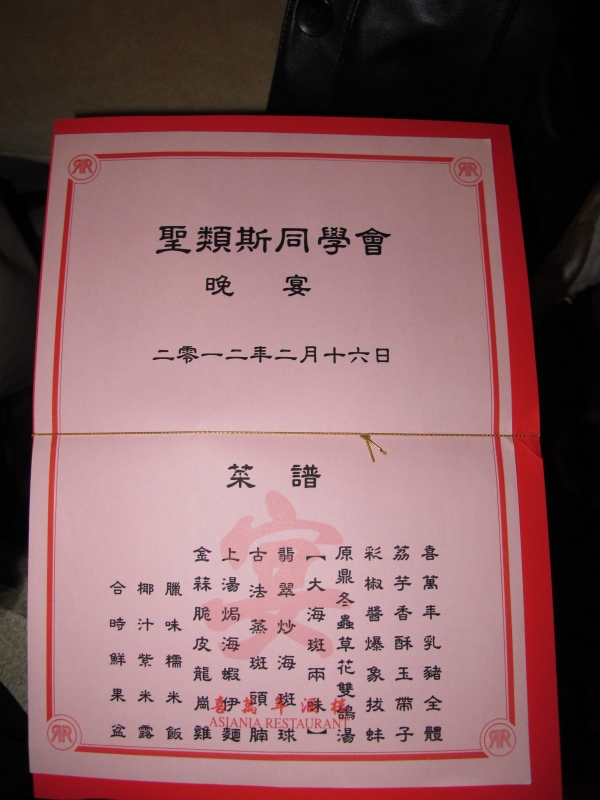 聖類斯同學會
晚 宴
二零一二年二月十六日
菜 譜
喜萬年乳豬全體
荔芋香酥玉帶子
彩椒醬爆象拔蚌
原鼎冬蟲草花雙鴿湯
【大海斑兩味】
翡翠炒海斑球
古法蒸斑頭腩
上湯焗海蝦伊麵
金蒜脆皮龍崗雞
臘味糯米飯
椰汁紫米露
合時鮮果盆
宴
喜萬年酒樓
ASIANIA RESTAURANT